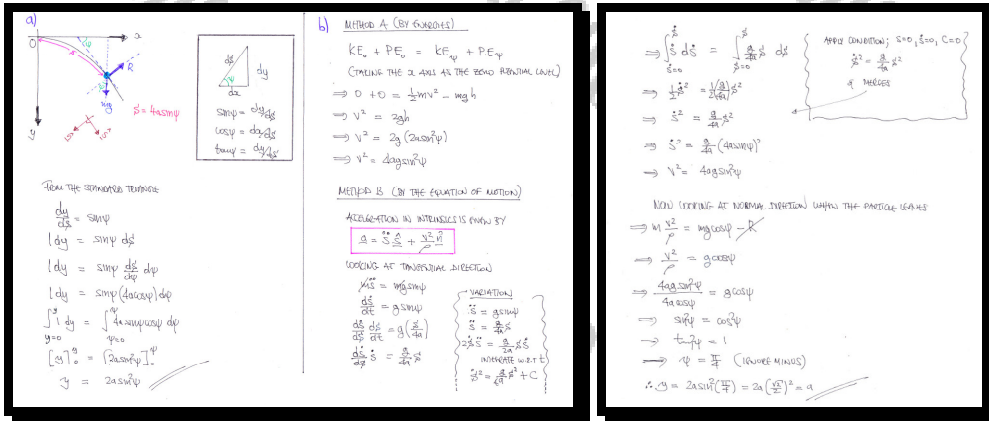 a)
O
x
ψ
R
mg
y
s = 4a sinψ
ds
dy
ψ
dx
sinψ = dy/ds
cosψ = dx/ds
tanψ = dy/dx
FROM THE STANDARD TRIANGLE
dy/ds = sinψ
1 dy = sinψ ds
1 dy = sinψ ds/dψ dψ
1 dy = sinψ (4a cosψ) dψ
∫_{y=0}^{y} 1 dy = ∫_{ψ=0}^{ψ} 4a sinψ cosψ dψ
[y]_0^y = [2a sin²ψ]_0^ψ
y = 2a sin²ψ
b) METHOD A (BY ENERGIES)
KE₀ + PE₀ = KEψ + PEψ
(TAKING THE x AXIS AS THE ZERO POTENTIAL LEVEL)
⇒ 0 + 0 = ½mv² − mgh
⇒ v² = 2gh
⇒ v² = 2g(2a sin²ψ)
⇒ v² = 4ag sin²ψ
METHOD B (BY THE EQUATION OF MOTION)
ACCELERATION IN INTRINSICS IS GIVEN BY
a = s̈ ŝ + v²/ρ n̂
LOOKING AT TANGENTIAL DIRECTION
ms̈ = mg sinψ
dṡ/dt = g sinψ
dṡ/ds ds/dt = g(s/4a)
dṡ/ds ṡ = g/4a s
VARIATION
s̈ = g sinψ
s̈ = g/4a s
2ṡs̈ = g/2a sṡ
INTEGRATE W.R.T t
ṡ² = g/4a s² + C
⇒ ∫_{ṡ=0}^{ṡ} ṡ dṡ = ∫_{s=0}^{s} g/4a s ds
⇒ ½ṡ² = ½(g/4a)s²
⇒ ṡ² = g/4a s²
⇒ ṡ² = g/4a (4a sinψ)²
⇒ v² = 4ag sin²ψ
APPLY CONDITION; s=0, ṡ=0, C=0
ṡ² = g/4a s²
& MERGES
NOW LOOKING AT NORMAL DIRECTION WHEN THE PARTICLE LEAVES
⇒ m v²/ρ = mg cosψ − R
⇒ v²/ρ = g cosψ
⇒ 4ag sin²ψ / 4a cosψ = g cosψ
⇒ sin²ψ = cos²ψ
⇒ tan²ψ = 1
⇒ ψ = π/4 (IGNORE MINUS)
∴ y = 2a sin²(π/4) = 2a(√2/2)² = a